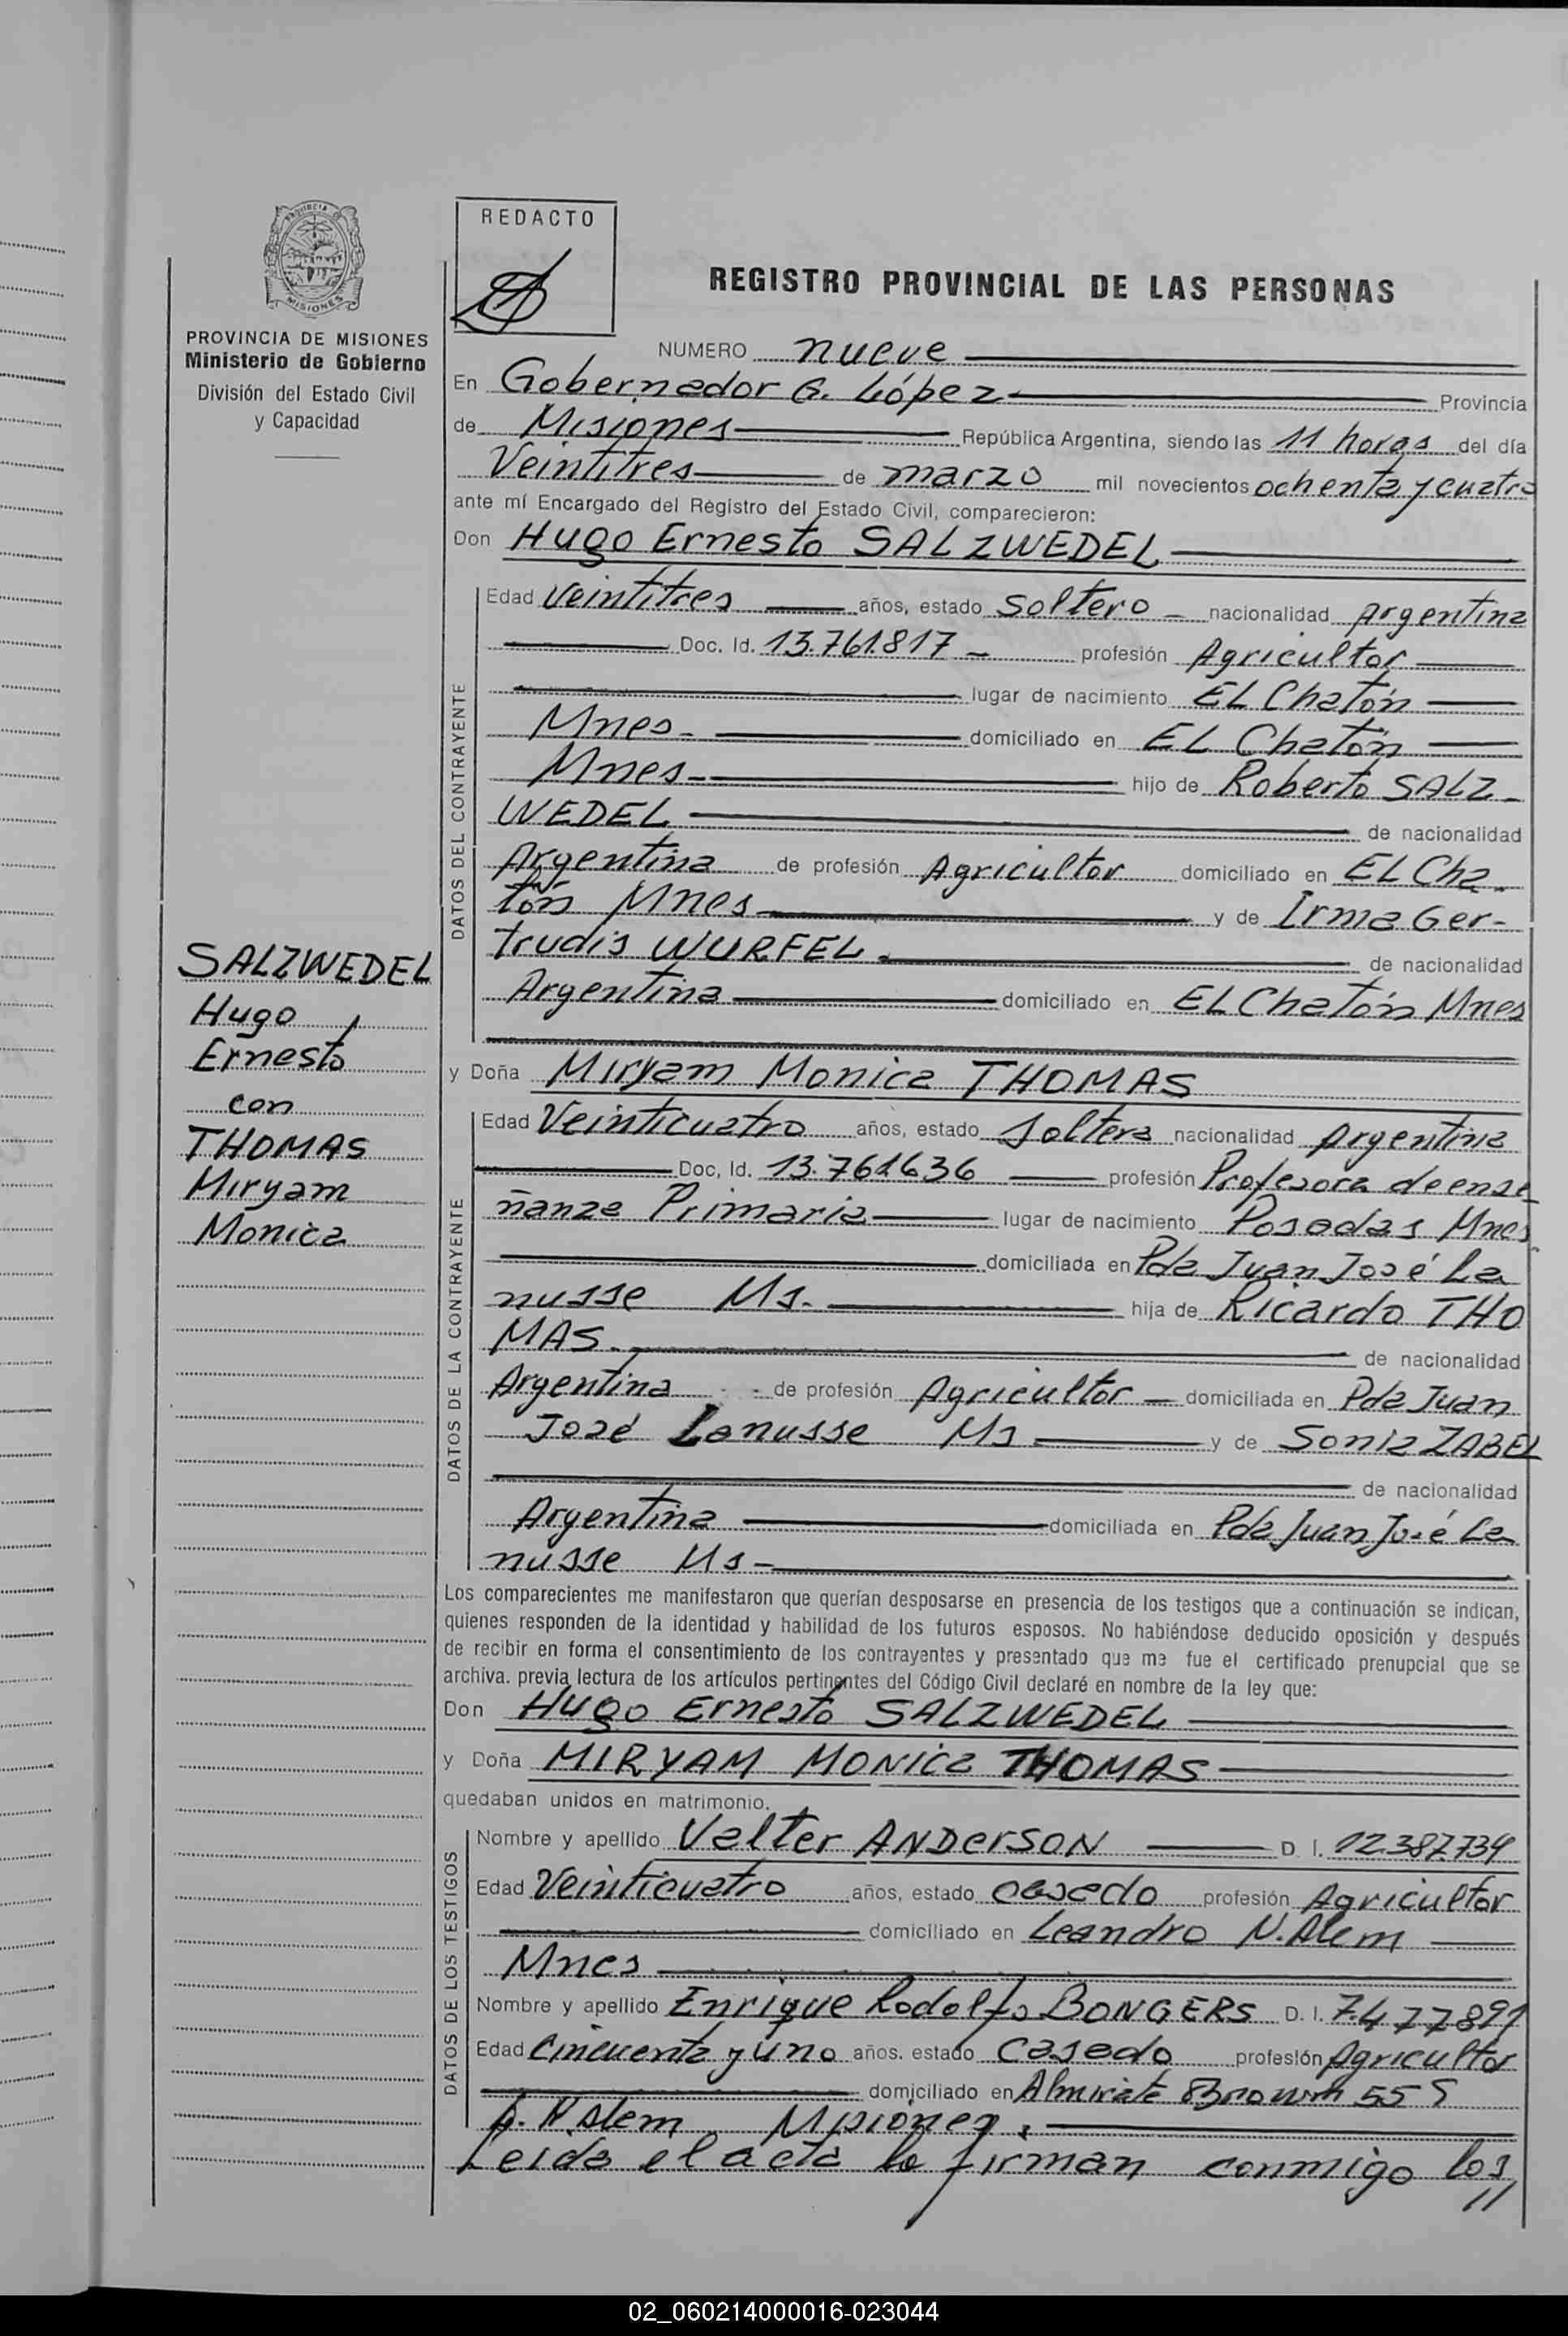 REDACTO
REGISTRO PROVINCIAL DE LAS PERSONAS
PROVINCIA DE MISIONES
Ministerio de Gobierno
División del Estado Civil
y Capacidad
NUMERO nueve
En Gobernador G. López Provincia
de Misiones República Argentina, siendo las 11 horas del día
Veintitres de marzo mil novecientos ochenta y cuatro
ante mí Encargado del Registro del Estado Civil, comparecieron:
Don Hugo Ernesto SALZWEDEL
DATOS DEL CONTRAYENTE
Edad Veintitres años, estado soltero nacionalidad Argentina
Doc. Id. 13.761.817 - profesión Agricultor
lugar de nacimiento EL Chatón
Mnes - domiciliado en EL Chatón
Mnes - hijo de Roberto SALZ-
WEDEL de nacionalidad
Argentina de profesión Agricultor domiciliado en EL Cha-
tón Mnes y de Irma Ger-
trudis WURFEL de nacionalidad
Argentina domiciliado en EL Chatón Mnes
SALZWEDEL
Hugo
Ernesto
con
THOMAS
Miryam
Monica
y Doña Miryam Monica THOMAS
DATOS DE LA CONTRAYENTE
Edad Veinticuatro años, estado soltera nacionalidad Argentina
Doc, Id. 13.761.636 profesión Profesora de ense
ñanza Primaria lugar de nacimiento Posadas Mnes
domiciliada en Pda Juan José La
nusse Ms. hija de Ricardo THO
MAS. de nacionalidad
Argentina de profesión Agricultor - domiciliada en Pda Juan
José Lanusse Ms y de Sonia ZABEL
de nacionalidad
Argentina domiciliada en Pda Juan José La
nusse Ms -
Los comparecientes me manifestaron que querían desposarse en presencia de los testigos que a continuación se indican,
quienes responden de la identidad y habilidad de los futuros esposos. No habiéndose deducido oposición y después
de recibir en forma el consentimiento de los contrayentes y presentado que me fue el certificado prenupcial que se
archiva. previa lectura de los artículos pertinentes del Código Civil declaré en nombre de la ley que:
Don Hugo Ernesto SALZWEDEL
y Doña MIRYAM MONICA THOMAS
quedaban unidos en matrimonio.
DATOS DE LOS TESTIGOS
Nombre y apellido Valter ANDERSON D. I. 12.387.734
Edad Veinticuatro años, estado casado profesión Agricultor
domiciliado en Leandro N. Alem
Mnes
Nombre y apellido Enrique Rodolfo BONGERS D. I. 7.477891
Edad Cincuenta y uno años. estado casado profesión Agricultor
domiciliado en Almirante Brown 555
L. N Alem Misiones.
Leida el acta la firman conmigo los
//
02_060214000016-023044